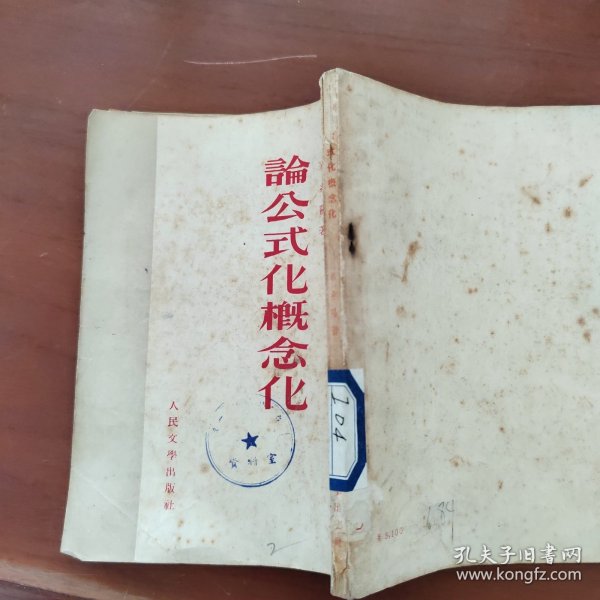 論公式化概念化
人民文學出版社
資料室
2
式化概念化
104
684
孔夫子旧书网
www.kongfz.com